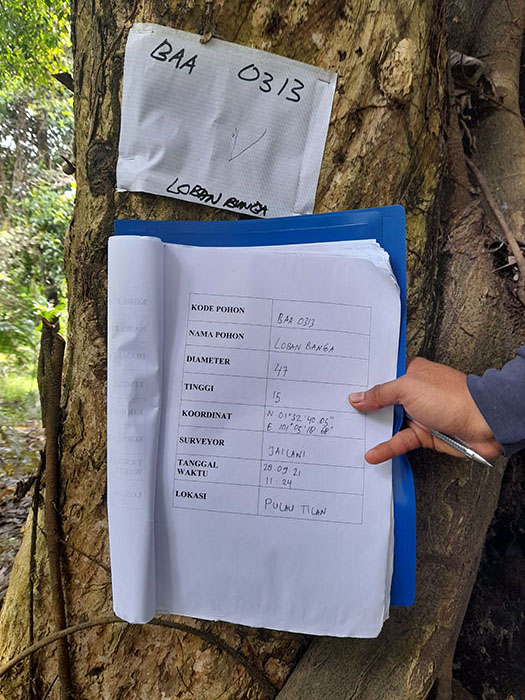 BAA 0313
LOBAN BUNGA
KODE POHON BAA 0313
NAMA POHON LOBAN BANGA
DIAMETER 47
TINGGI 15
KOORDINAT N 01°32'40.05"
E 101°05'18.68"
SURVEYOR JAILANI
TANGGAL 28.09.21
WAKTU 11:24
LOKASI PULAU TILAN